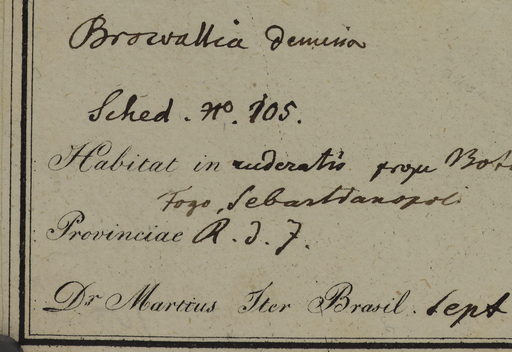 Browallia demissa
Sched. No. 105.
Habitat in ruderatis prope Boto
Fogo, Sebastianopoli
Provinciae R. d. J.
Dr Martius Iter Brasil. Sept